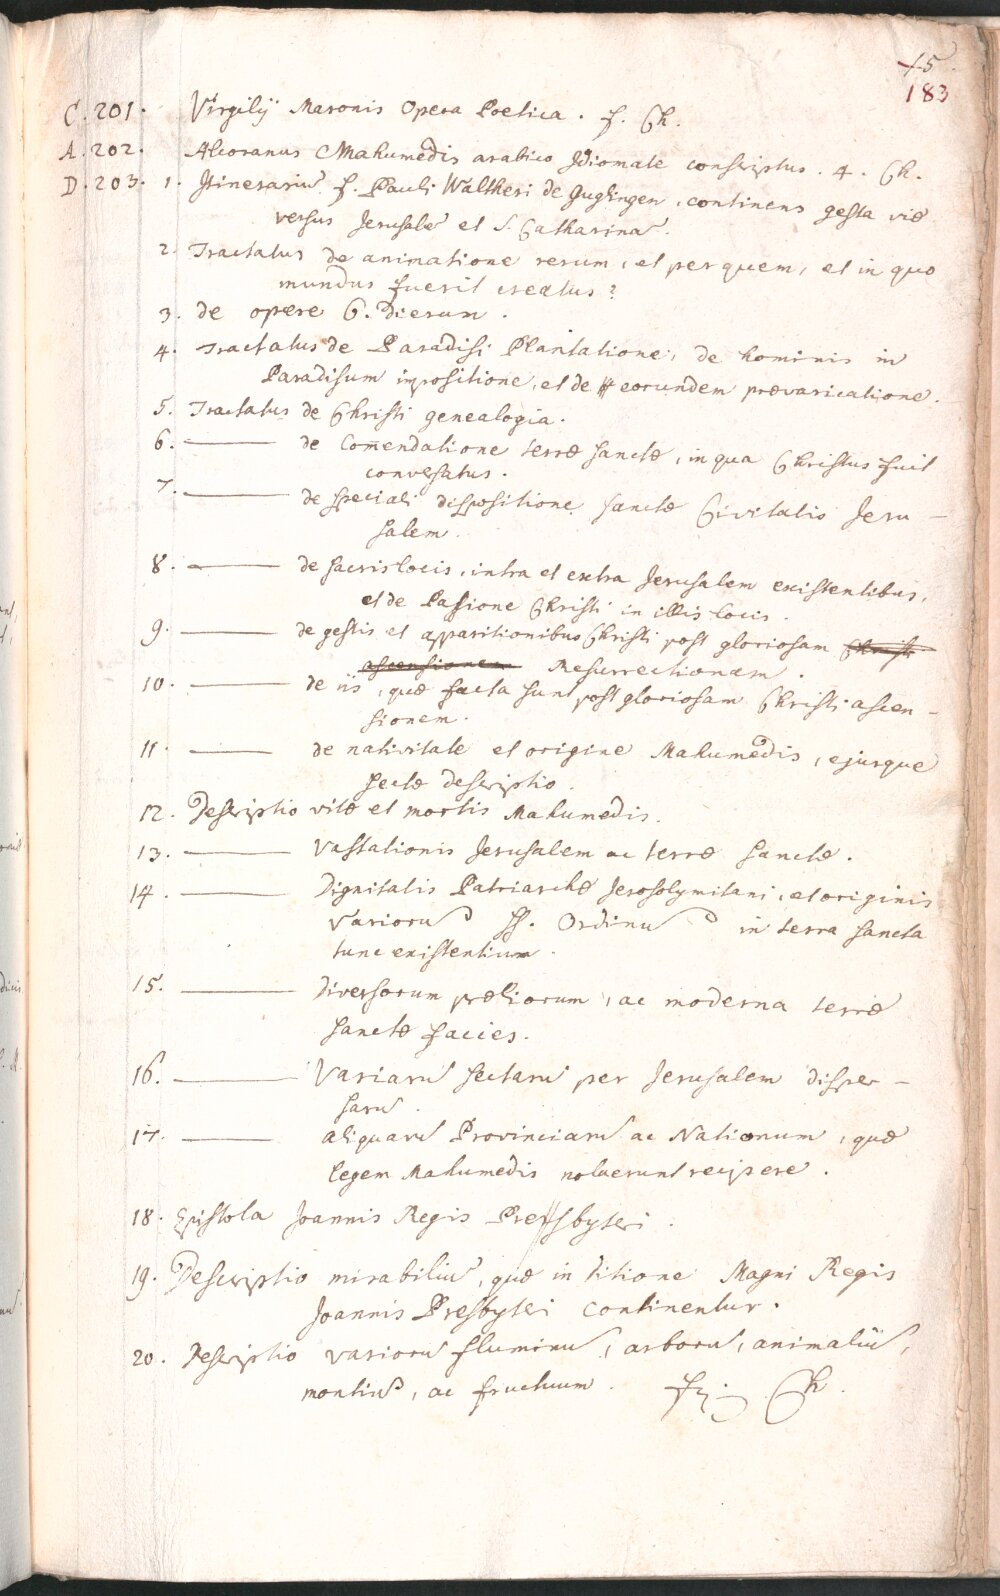 15.
183
C. 201. Virgilij Maronis Opera Poetica. f. Ch.
A. 202. Alcoranus Mahumedis arabico Idiomate conscriptus. 4. Ch.
D. 203. 1. Itinerariũ f. Pauli Waltheri de Guglingen, continens gesta viæ
versus Jerusalẽ et S. Catharinã.
2. Tractatus de animatione rerum, et per quem, et in quo
mundus fuerit creatus?
3. de opere 6. Dierum.
4. Tractatus de Paradisi Plantatione, de hominis in
Paradisum impositione, et de eorundem prævaricatione.
5. Tractatus de Christi genealogia.
6. ——— de Com̃endatione terræ sanctæ, in qua Christus fuit
conversatus.
7. ——— de speciali dispositione sanctæ Civitatis Jeru-
salem.
8. ——— de sacris locis, intra et extra Jerusalem existentibus,
et de Passione Christi in illis locis.
9. ——— de gestis et apparitionibus Christi post gloriosam Christi
ascensionem Resurrectionem.
10. ——— de iis, quæ facta sunt post gloriosam Christi ascen-
sionem.
11. ——— de nativitate et origine Mahumedis, ejusque
sectæ descriptio.
12. Descriptio vitæ et mortis Mahumedis.
13. ——— Vastationis Jerusalem ac terræ sanctæ.
14. ——— Dignitatis Patriarchæ Jerosolymitani, et originis
Variorũ SS. Ordinũ in terra sancta
tunc existentium.
15. ——— Diversorum præliorum, ac moderna terræ
sanctæ facies.
16. ——— Variarũ sectarũ per Jerusalem disper-
sarũ.
17. ——— aliquarũ Provinciarũ ac Nationum, quæ
legem Mahumedis noluerunt recipere.
18. Epistola Joannis Regis Presbyteri.
19. Descriptio mirabiliũ, quæ in ditione Magni Regis
Joannis Presbyteri continentur.
20. Descriptio variorũ fluminũ, arborũ, animaliũ,
montiũ, ac fructuum. f. Ch.